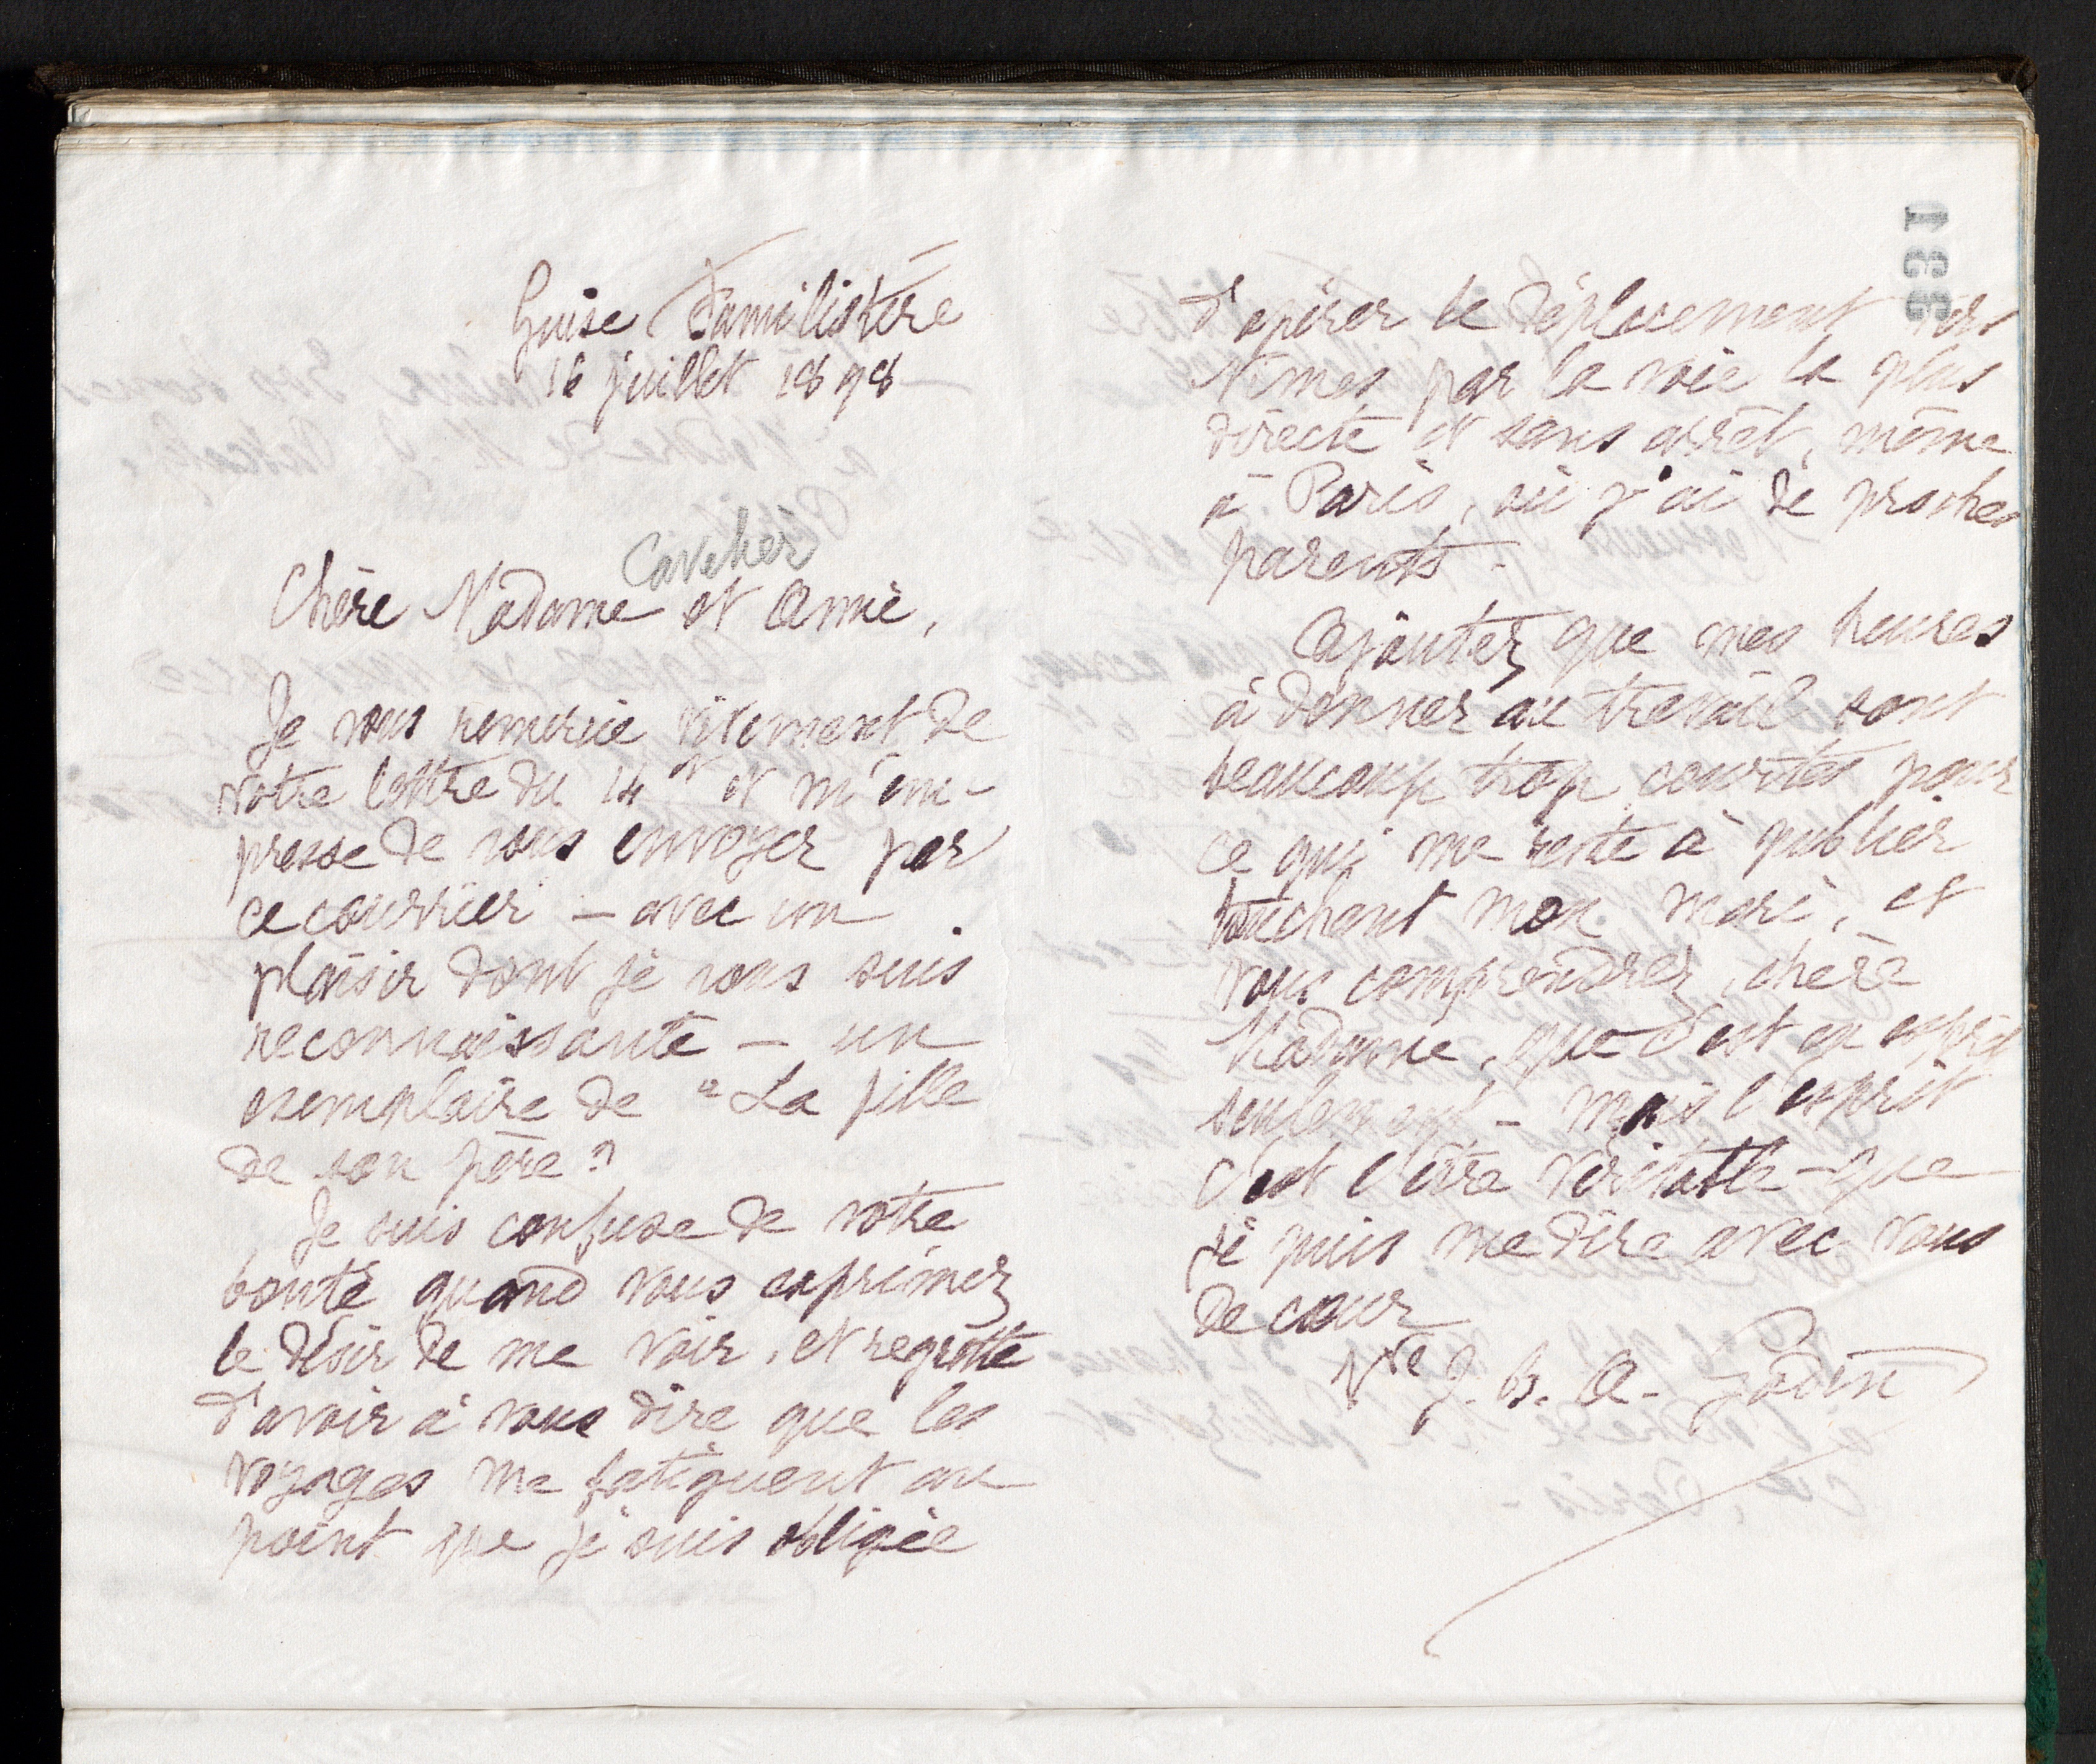 Guise Familistère
16 juillet 1898
Cavelier
Chère Madame et Amie,
Je vous remercie vivement de
votre lettre du 14 et m'em-
presse de vous envoyer par
ce courrier – avec un
plaisir dont je vous suis
reconnaissante – un
exemplaire de "La fille
de son père"
Je suis confuse de votre
bonté quand vous exprimez
le désir de me voir, et regrette
d'avoir à vous dire que les
voyages me fatiguent au
point que je suis obligée
331
d'opérer le déplacement vers
Nîmes par la voie la plus
directe et sans arrêt, même
à Paris, où j'ai de proches
parents.
Ajoutez que mes heures
à donner au travail sont
beaucoup trop courtes pour
ce qui me reste à publier
touchant mon mari, et
vous comprendrez, chère
Madame, que c'est en esprit
seulement – mais l'esprit
c'est l'être véritable – que
je puis me dire avec vous
de cœur
Vve J. B. A. Godin